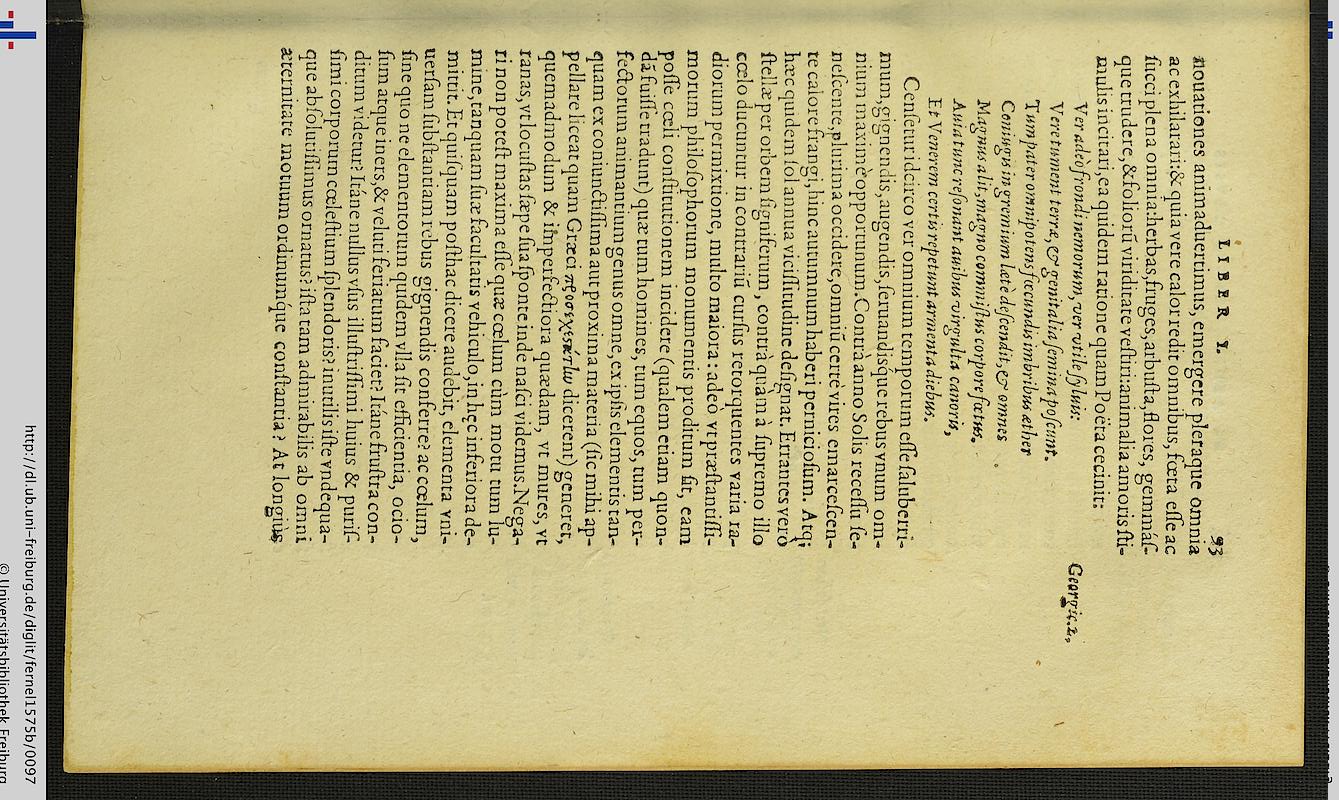 LIBER I. 93
nouationes animaduertimus, emergere pleraque omnia
ac exhilarari: & quia vere calor redit omnibus, fœta esse ac
succi plena omnia: herbas, fruges, arbusta, flores, gemmás-
que trudere, & foliorū viriditate vestiri: animalia amoris sti-
mulis incitari, ea quidem ratione quam Poëta cecinit:
Georgic. 2.
Ver adeò frondi nemorum, ver vtile syluis:
Vere tument terræ, & genitalia semina poscunt.
Tum pater omnipotens fœcundis imbribus æther
Coniugis in gremium læte descendit, & omnes
Magnus alit, magno commistus corpore fœtus.
Auia tunc resonant auibus virgulta canoris,
Et Venerem certis repetunt armenta diebus.
Censetur idcirco ver omnium temporum esse saluberri-
mum, gignendis, augendis, seruandísque rebus vnum om-
nium maximè opportunum. Contrà anno Solis recessu se-
nescente, plurima occidere, omniū certè vires emarcescen-
te calore frangi, hinc autumnum haberi perniciosum. Atq;
hæc quidem sol annua vicissitudine designat. Errantes verò
stellæ per orbem signiferum, contrà quàm à supremo illo
cœlo ducuntur in contrariū cursus retorquentes varia ra-
diorum permixtione, multo maiora: adeò vt præstantissi-
morum philosophorum monumentis proditum sit, eam
posse cœli constitutionem incidere (qualem etiam quon-
dā fuisse tradunt) quæ tum homines, tum equos, tum per-
fectorum animantium genus omne, ex ipsis elementis tan-
quam ex coniunctissima aut proxima materia (sic mihi ap-
pellare liceat quam Græci προσεχεστάτην dicerent) generet,
quemadmodum & imperfectiora quædam, vt mures, vt
ranas, vt locustas sæpe sua sponte inde nasci videmus. Nega-
ri non potest maxima esse quæ cœlum cùm motu tum lu-
mine, tanquam suæ facultatis vehiculo, in hęc inferiora de-
mittit. Et quisquam posthac dicere audebit, elementa vni-
uersam substantiam rebus gignendis conferre? ac cœlum,
sine quo ne elementorum quidem vlla sit efficientia, ocio-
sum atque iners, & veluti feriatum faciet? Itáne frustra con-
ditum videtur? Itáne nullus vsus illustrissimi huius & puris-
simi corporum cœlestium splendoris? inutilis iste vndequa-
que absolutissimus ornatus? ista tam admirabilis ab omni
æternitate motuum ordinumque constantia? At longius
http://dl.ub.uni-freiburg.de/diglit/fernel1575b/0097
© Universitätsbibliothek Freiburg